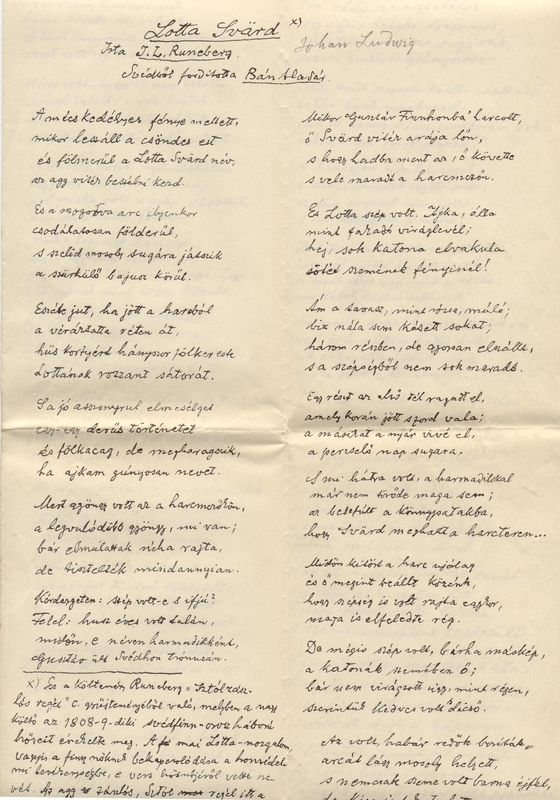 Lotta Svärd x)
Johan Ludwig
Irta J. L. Runeberg.
Svédből fordította Bán Aladár.
A mécs kedélyes fénye mellett,
mikor leszáll a csöndes est
és fölmerül a Lotta Svärd név,
az agg vitéz beszélni kezd.
És a mogorva arc ilyenkor
csodálatosan földerül,
s szelid mosoly sugára játszik
a szürkülő bajusz körül.
Eszébe jut, ha jött a harcból
a vérázta réten át,
hüs kortyért hányszor fölkereste
Lottának rosszant sátorát.
S a jó asszonyrul elmesélget
egy-egy derüs történetet
és fölkacag, de megharagszik,
ha ajkam gúnyosan nevet.
Mert gyöngy volt az a harcmezőkön,
a legvalódibb gyöngy, mi van;
bár elmulattak néha rajta,
de tisztelték mindannyian.
Kérdezgeten: szép volt-e s ifjú?
Felel: husz éves volt talán,
midőn, e néven harmadikként,
Gusztáv ült Svédhon trónusán.
x) Ez a költemény Runeberg „Sztól zász-
lós regéi" c. gyüjteményéből való, melyben a nagy
költő az 1808-9-diki svédfinn-orosz háború
hőseit énekelte meg. A mai Lotta-mozgalom,
vagyis a finn nőknek bekapcsolódása a honvédel-
mi tevékenységbe, e vers hősnőjéről vette ne-
vét. Az agg zászlós, Sztól regél itt a
Mikor Gusztáv Finnhonbá' harcolt,
ő Svärd vitéz arája lőn,
s hogy hadba ment az, ő követte
s vele maradt a harcmezőn.
És Lotta szép volt. Ajka, álla
mint fakadó viráglevél;
hej, sok katona elvakula
sötét szemének fényinél!
Ám a tavasz, mint rózsa, múló;
biz nála sem késett sokat;
három részben, de gyorsan elszállt,
s a szépségből nem sok maradt.
Egy részt az első tél ragadt el,
amely korán jött s zord vala;
a másikat a nyár vivé el,
a perzselő nap sugara.
S mi hátra volt, a harmadikkal
már nem törőde maga sem;
az belefúlt a könnypatakba,
hogy Svärd meghalt a harctéren...
Midőn kitört a harc ujólag
és ő megint beállt közénk,
hogy szépség is volt rajta egykor,
maga is elfeledte rég.
De mégis szép volt, bárha máskép,
a katonák szemében ő;
bár nem virágzott úgy, mint régen,
szerintük kedves volt s dicső.
Az volt, habár redők boríták
arcát lágy mosoly helyett,
s nemcsak szeme volt barna éjfél,